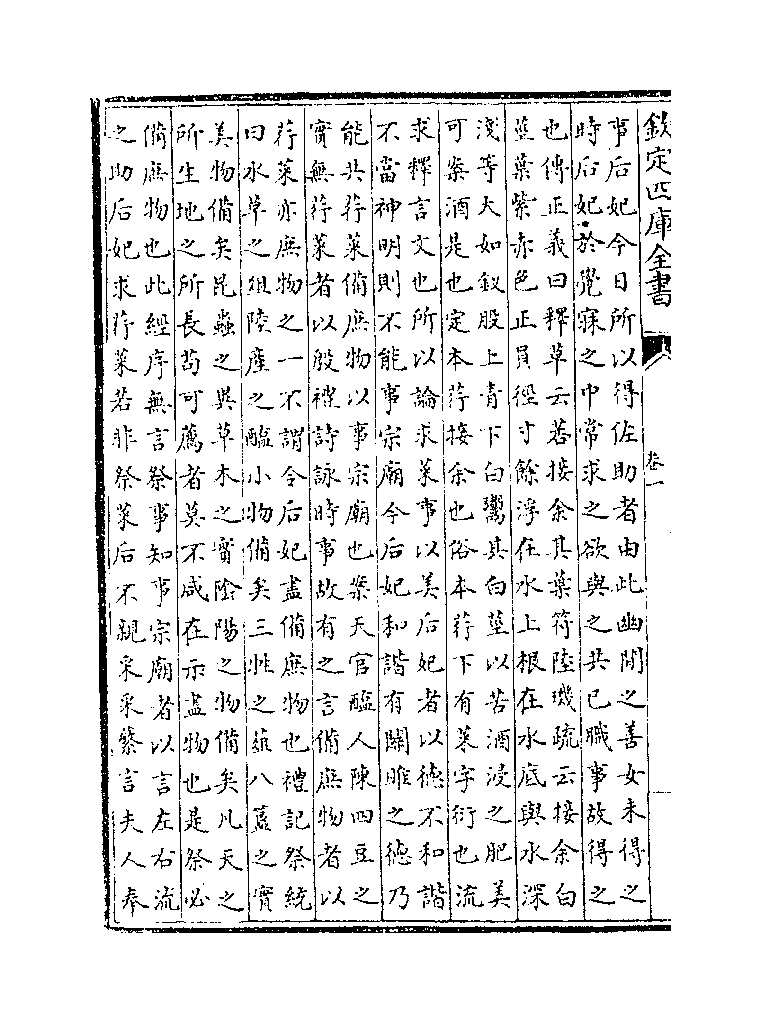 欽定四庫全書
卷一
事后妃今日所以得佐助者由此幽閒之善女未得之
時后妃於覺寐之中常求之欲與之共已職事故得之
也傳正義曰釋草云荇接余其葉符陸璣疏云接余白
莖葉紫赤色正員徑寸餘浮在水上根在水底與水深
淺等大如釵股上青下白鬻其白莖以苦酒浸之肥美
可案酒是也定本荇接余也俗本荇下有菜字衍也流
求釋言文也所以論求菜事以美后妃者以德不和諧
不當神明則不能事宗廟今后妃和諧有關雎之德乃
能共荇菜備庶物以事宗廟也案天官醢人陳四豆之
實無荇菜者以殷禮詩詠時事故有之言備庶物者以
荇菜亦庶物之一不謂今后妃盡備庶物也禮記祭統
曰水草之葅陸產之醢小物備矣三牲之葅八簋之實
美物備矣昆蟲之異草木之實陰陽之物備矣凡天之
所生地之所長苟可薦者莫不咸在示盡物也是祭必
備庶物也此經序無言祭事知事宗廟者以言左右流
之助后妃求荇菜若非祭菜后不親采采蘩言夫人奉